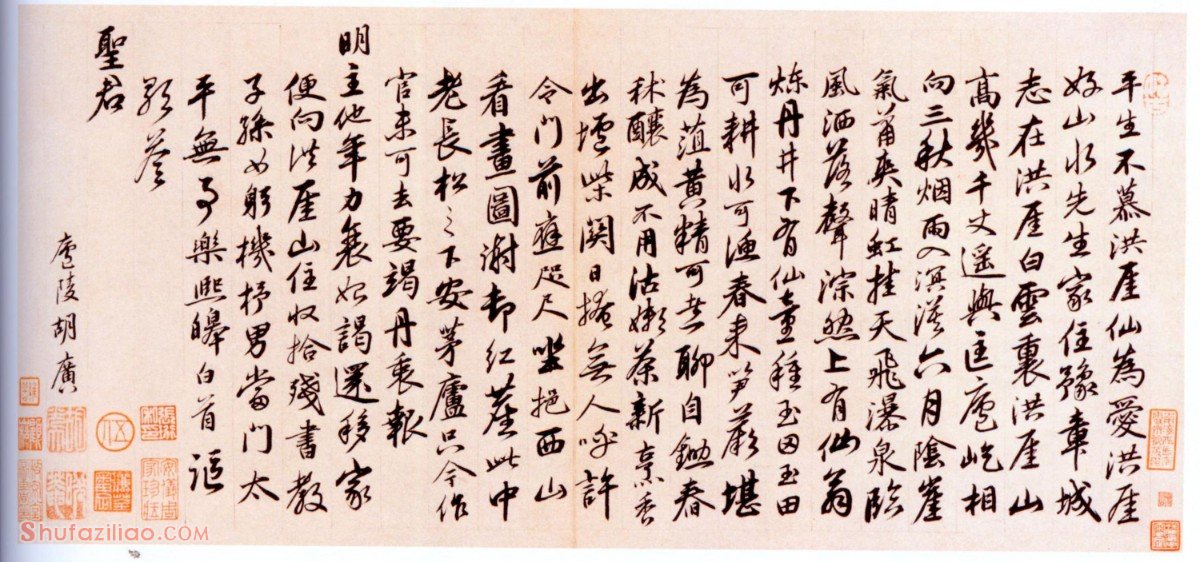 平生不慕洪厓仙為愛洪厓
好山水先生家住豫章城
志在洪厓白雲裏洪厓山
高幾千丈遥與匡廬屹相
向三秋烟雨入溟漠六月陰崖
氣蕭爽晴虹挂天飛瀑泉臨
風洒落聲淙然上有仙翁
煉丹井下有仙童種玉田玉田
可耕水可漁春来笋蕨堪
為葅黄精可煮聊自鋤春
秫釀成不用沽嫩茶新烹香
出爐柴関日掩無人呼許
令門前在咫尺坐挹西山
看畫圖謝却紅塵此中
老長松之下安茅廬只今作
官未可去要竭丹衷報
明主他年力衰始謁還移家
便向洪厓山住收拾殘書教
子孫女躬機杼男當門太
平無事樂熙皞白首謳
歌荅
聖君
廬陵胡廣
Shufaziliao.COM